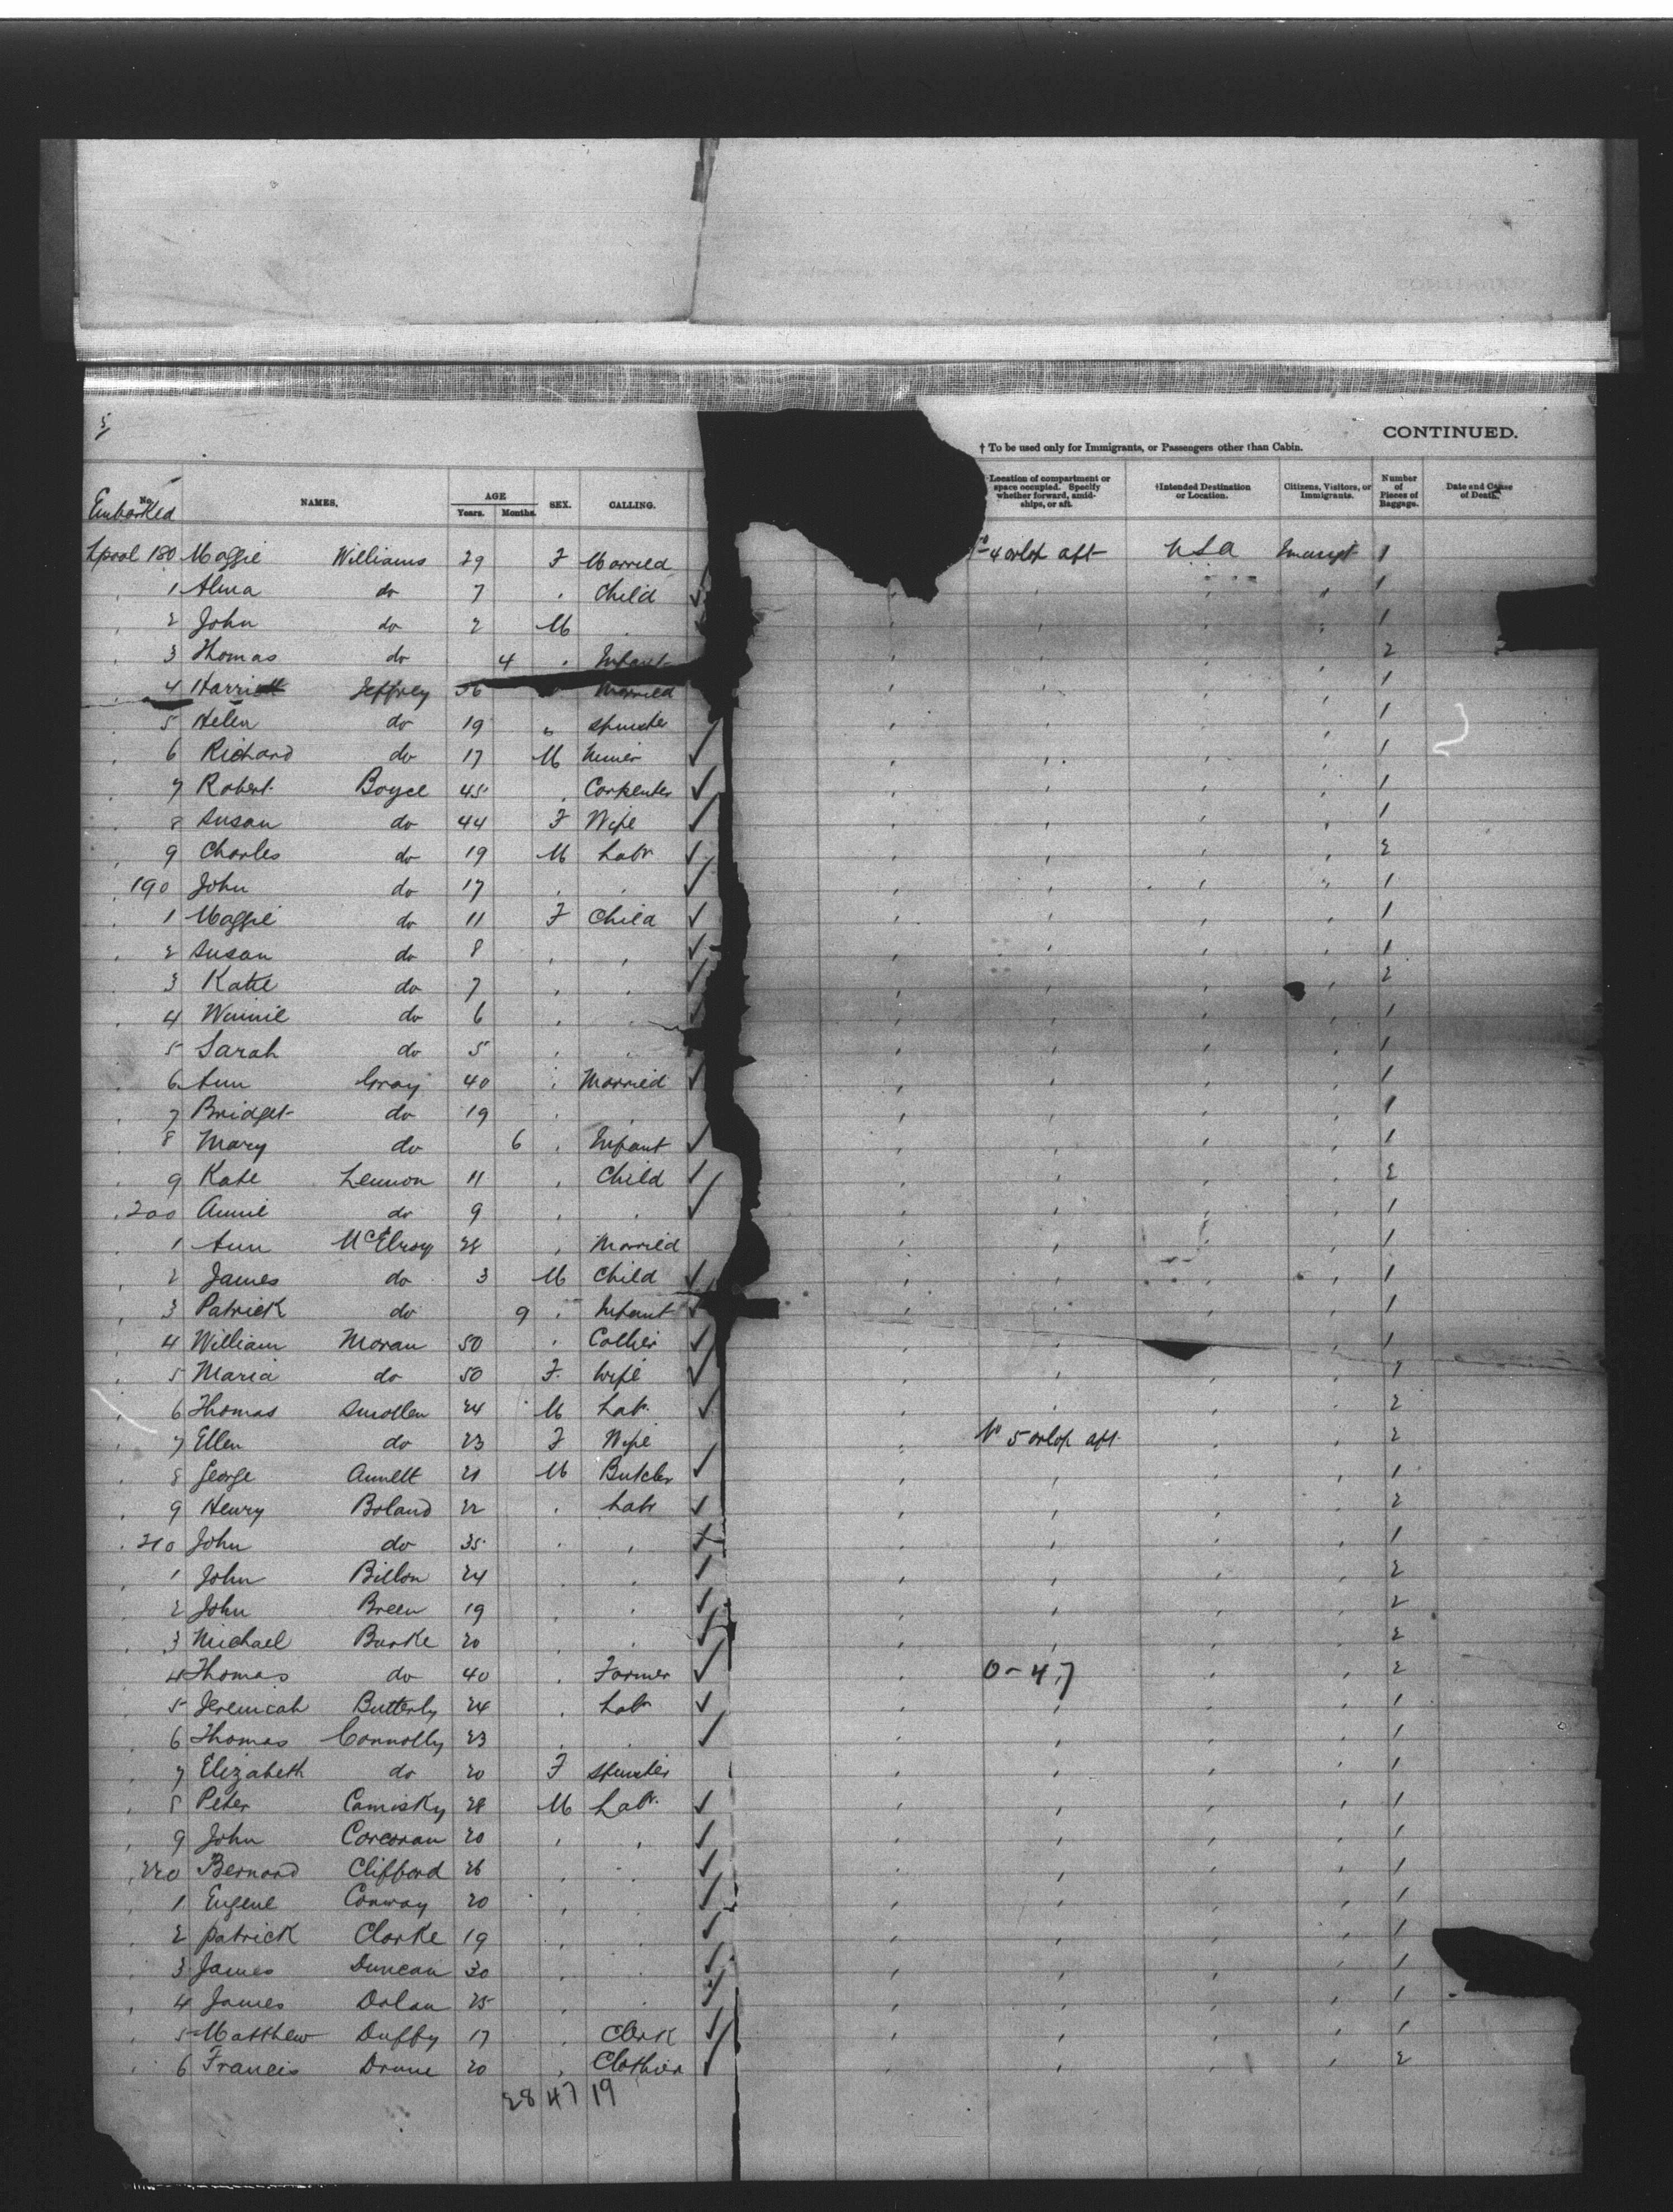 5/
CONTINUED.
† To be used only for Immigrants, or Passengers other than Cabin.
No. Embarked NAMES. AGE Years. Months. SEX. CALLING. Location of compartment or space occupied. Specify whether forward, amidships, or aft. †Intended Destination or Location. Citizens, Visitors, or Immigrants. Number of Pieces of Baggage. Date and Cause of Death.
Lpool 180 Maggie Williams 29 F Married 4 orlop aft USA 1
1 Alma do 7 " Child ✓ 1
2 John do 2 M " 1
3 Thomas do 4 " Infant 2
4 Harriett Jeffrey 56 Married 1
5 Helen do 19 " Spinster 1
6 Richard do 17 M Miner ✓ 1
7 Robert Boyce 45 " Carpenter ✓ 1
8 Susan do 44 F Wife ✓ 1
9 Charles do 19 M Labr ✓ 2
190 John do 17 " " ✓ 1
1 Maggie do 11 F Child ✓ 1
2 Susan do 8 " " ✓ 1
3 Katie do 7 " " ✓ 2
4 Winnie do 6 " " ✓ 1
5 Sarah do 5 " " 1
6 Ann Gray 40 " Married ✓ 1
7 Bridget do 19 " " 1
8 Mary do 6 " Infant ✓ 1
9 Kate Lennon 11 " Child ✓ 2
200 Annie do 9 " " ✓ 1
1 Ann McElroy 28 " Married 1
2 James do 3 M Child ✓ 1
3 Patrick do 9 " Infant ✓ 1
4 William Moran 50 " Collier ✓ 1
5 Maria do 50 F Wife ✓ 1
6 Thomas Smollen 24 M Labr ✓ 2
7 Ellen do 23 F Wife No 5 orlop aft 2
8 George Annett 21 M Butcher ✓ 1
9 Henry Boland 22 " Labr ✓ 2
210 John do 35 " " ✓ 1
1 John Billon 24 " " ✓ 2
2 John Breen 19 " " ✓ 2
3 Michael Burke 20 " " ✓ 2
4 Thomas do 40 " Farmer ✓ 0-47 2
5 Jeremiah Butterly 24 " Labr ✓ 1
6 Thomas Connolly 23 " " ✓ 1
7 Elizabeth do 20 F Spinster 1
8 Peter Camisky 28 M Labr ✓ 1
9 John Corcoran 20 " " ✓ 1
220 Bernard Clifford 26 " " ✓ 1
1 Eugene Conway 20 " " ✓ 1
2 Patrick Clarke 19 " " ✓ 1
3 James Duncan 30 " " ✓ 1
4 James Dolan 25 " " ✓ 1
5 Matthew Duffy 17 " Clerk ✓ 1
6 Francis 20 " Clothier ✓ 2
28 47 19